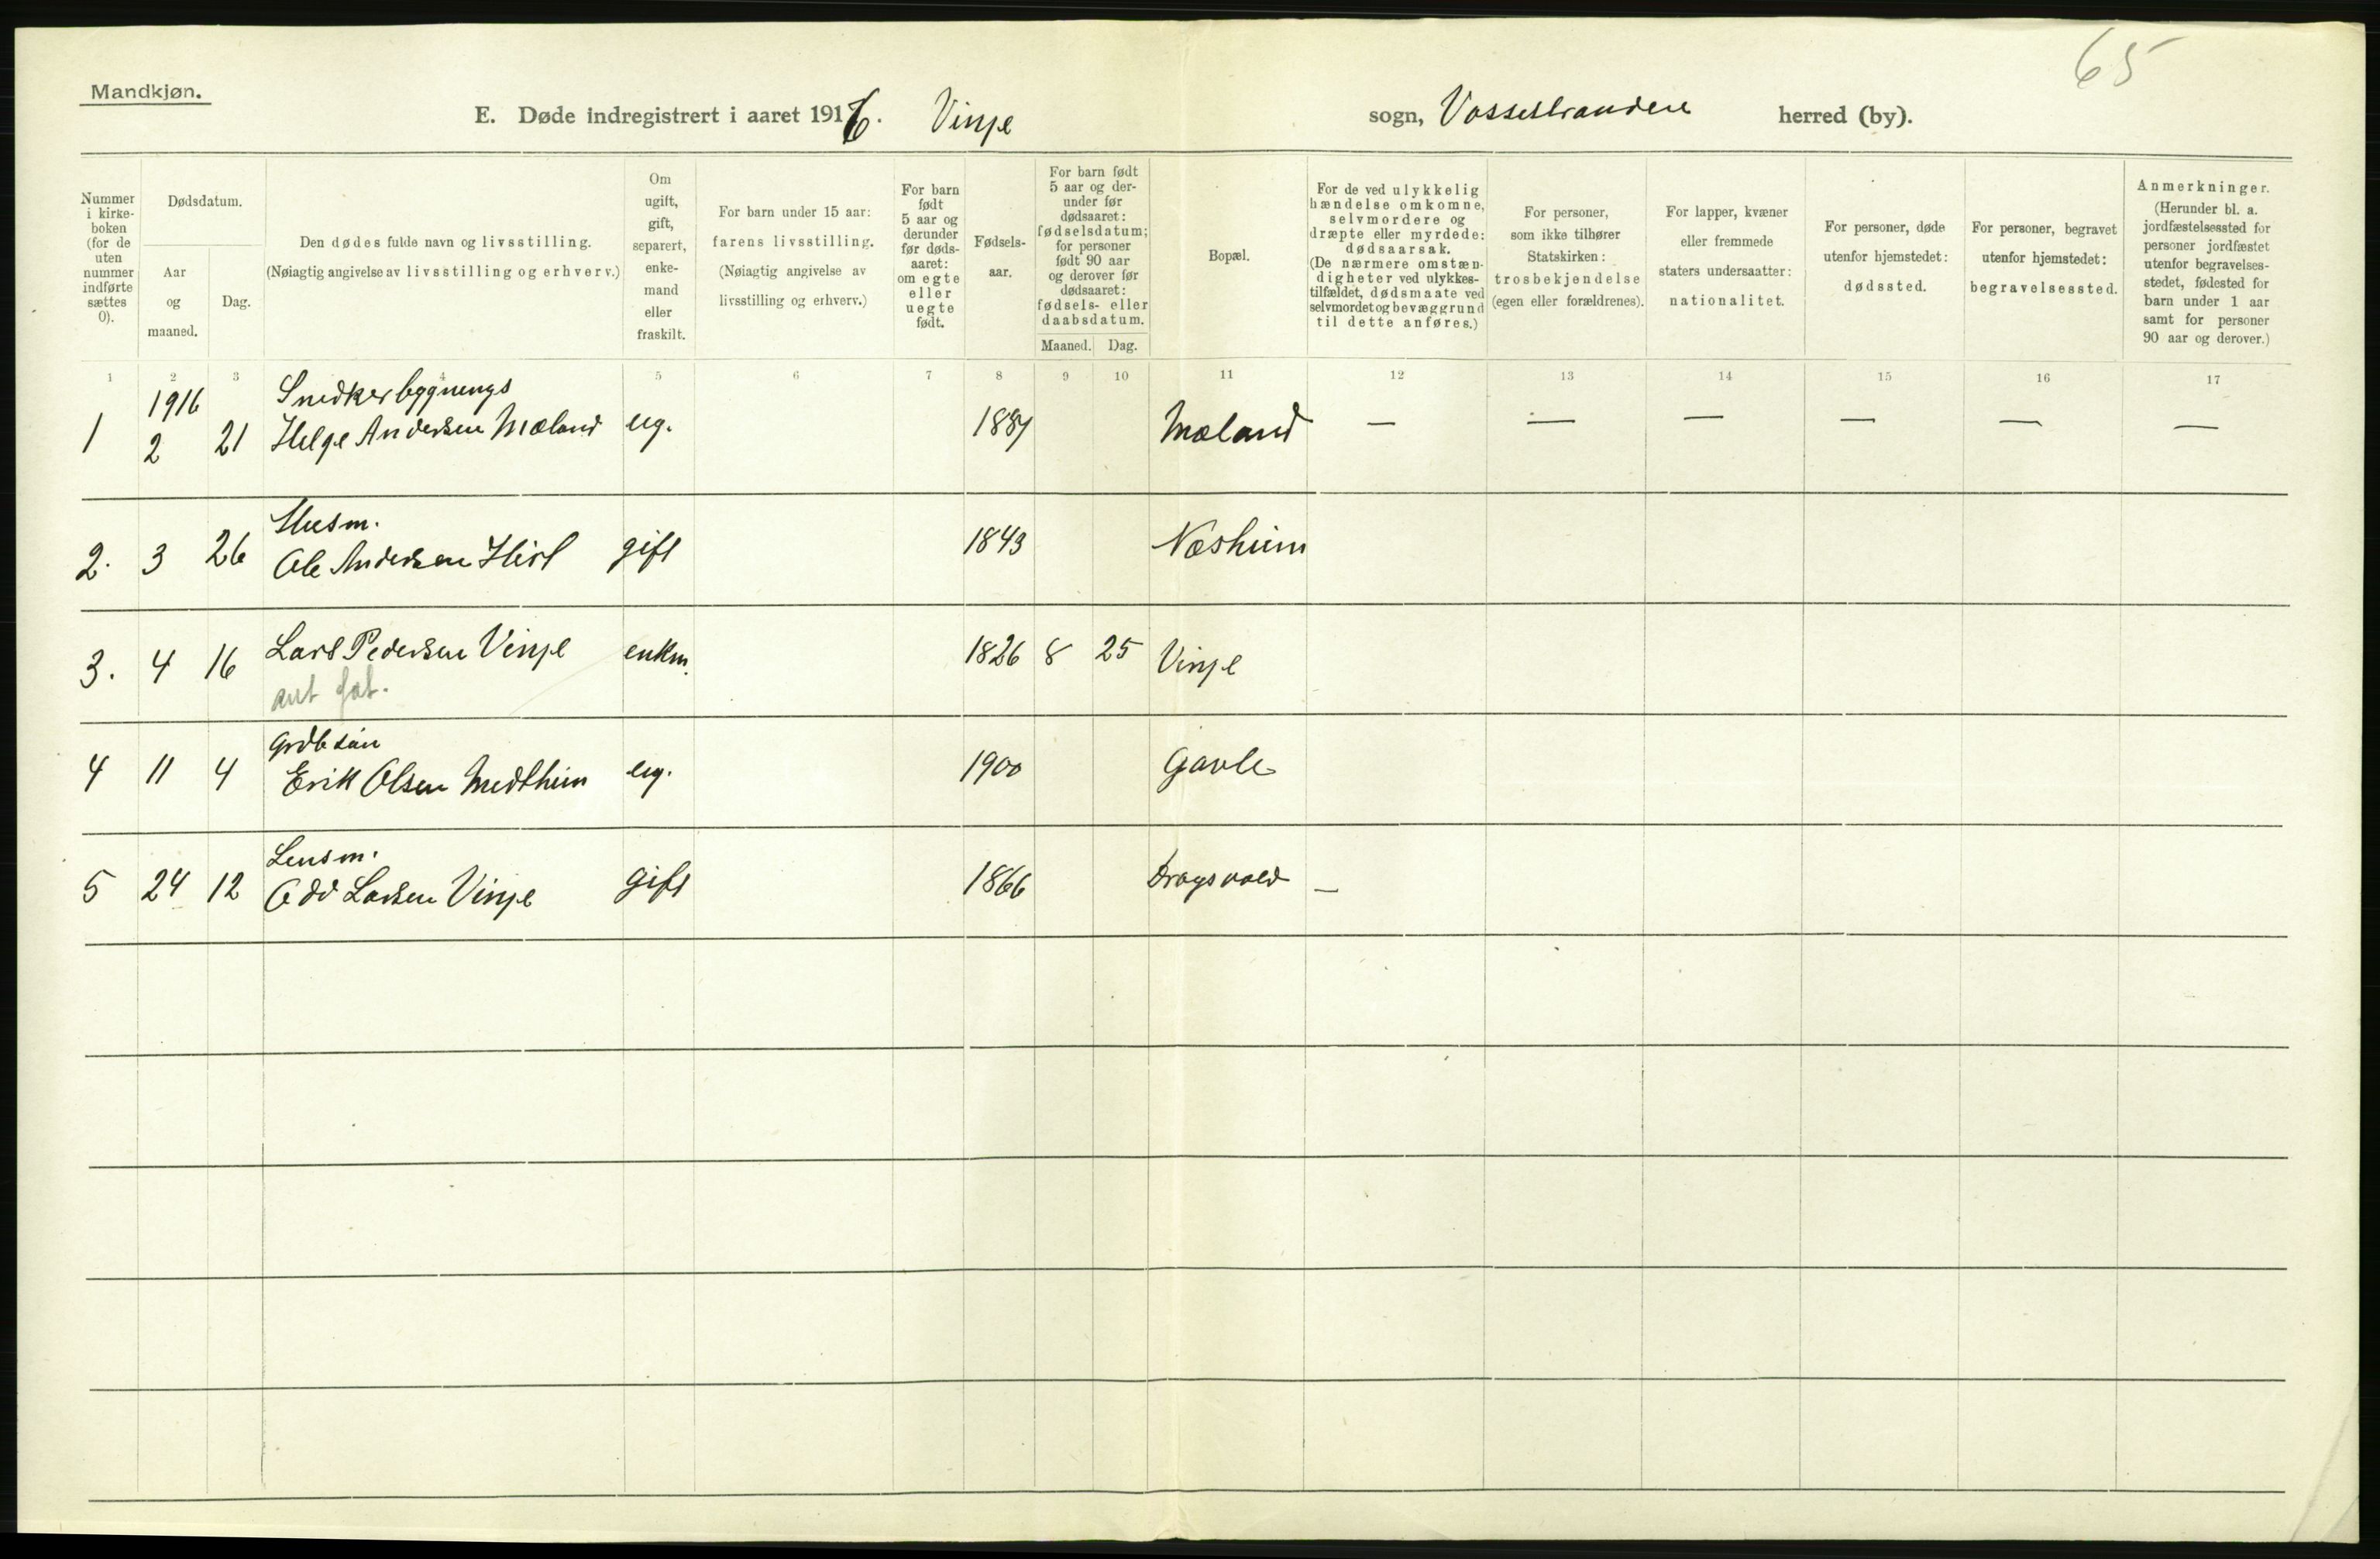 65
Mandkjøn.
E. Døde indregistrert i aaret 1916. Vinje sogn, Vossestranden herred (by).
Nummer
i kirke-
boken
(for de
uten
nummer
indførte
sættes
0).
Dødsdatum.
Aar
og
maaned.
Dag.
Den dødes fulde navn og livsstilling.
(Nøiagtig angivelse av livsstilling og erhverv.)
Om
ugift,
gift,
separert,
enke-
mand
eller
fraskilt.
For barn under 15 aar:
farens livsstilling.
(Nøiagtig angivelse av
livsstilling og erhverv.)
For barn
født
5 aar og
derunder
før døds-
aaret:
om egte
eller
uegte
født.
Fødsels-
aar.
For barn født
5 aar og der-
under før
dødsaaret:
fødselsdatum;
for personer
født 90 aar
og derover før
dødsaaret:
fødsels- eller
daabsdatum.
Maaned. Dag.
Bopæl.
For de ved ulykkelig
hændelse omkomne,
selvmordere og
dræpte eller myrdede:
dødsaarsak.
(De nærmere omstæn-
digheter ved ulykkes-
tilfældet, dødsmaate ved
selvmordet og bevæggrund
til dette anføres.)
For personer,
som ikke tilhører
Statskirken:
trosbekjendelse
(egen eller forældrenes).
For lapper, kvæner
eller fremmede
staters undersaatter:
nationalitet.
For personer, døde
utenfor hjemstedet:
dødssted.
For personer, begravet
utenfor hjemstedet:
begravelsessted.
Anmerkninger.
(Herunder bl. a.
jordfæstelsessted for
personer jordfæstet
utenfor begravelses-
stedet, fødested for
barn under 1 aar
samt for personer
90 aar og derover.)
1 2 3 4 5 6 7 8 9 10 11 12 13 14 15 16 17
1916 Snedker bygnings
1 2 21 Helge Andersen Mæland ug. Mæland — — — — — —
Husm.
2. 3 26 Ole Andersen gift 1843 Næsheim
3. 4 16 Lars Pedersen Vinje enkm. 1826 8 25 Vinje
Grdb søn
4 11 4 Erik Olsen Medheim ug. 1900 Gavle
Lensm.
5 24 12 Odd Larsen Vinje gift 1866 Dragsvold —